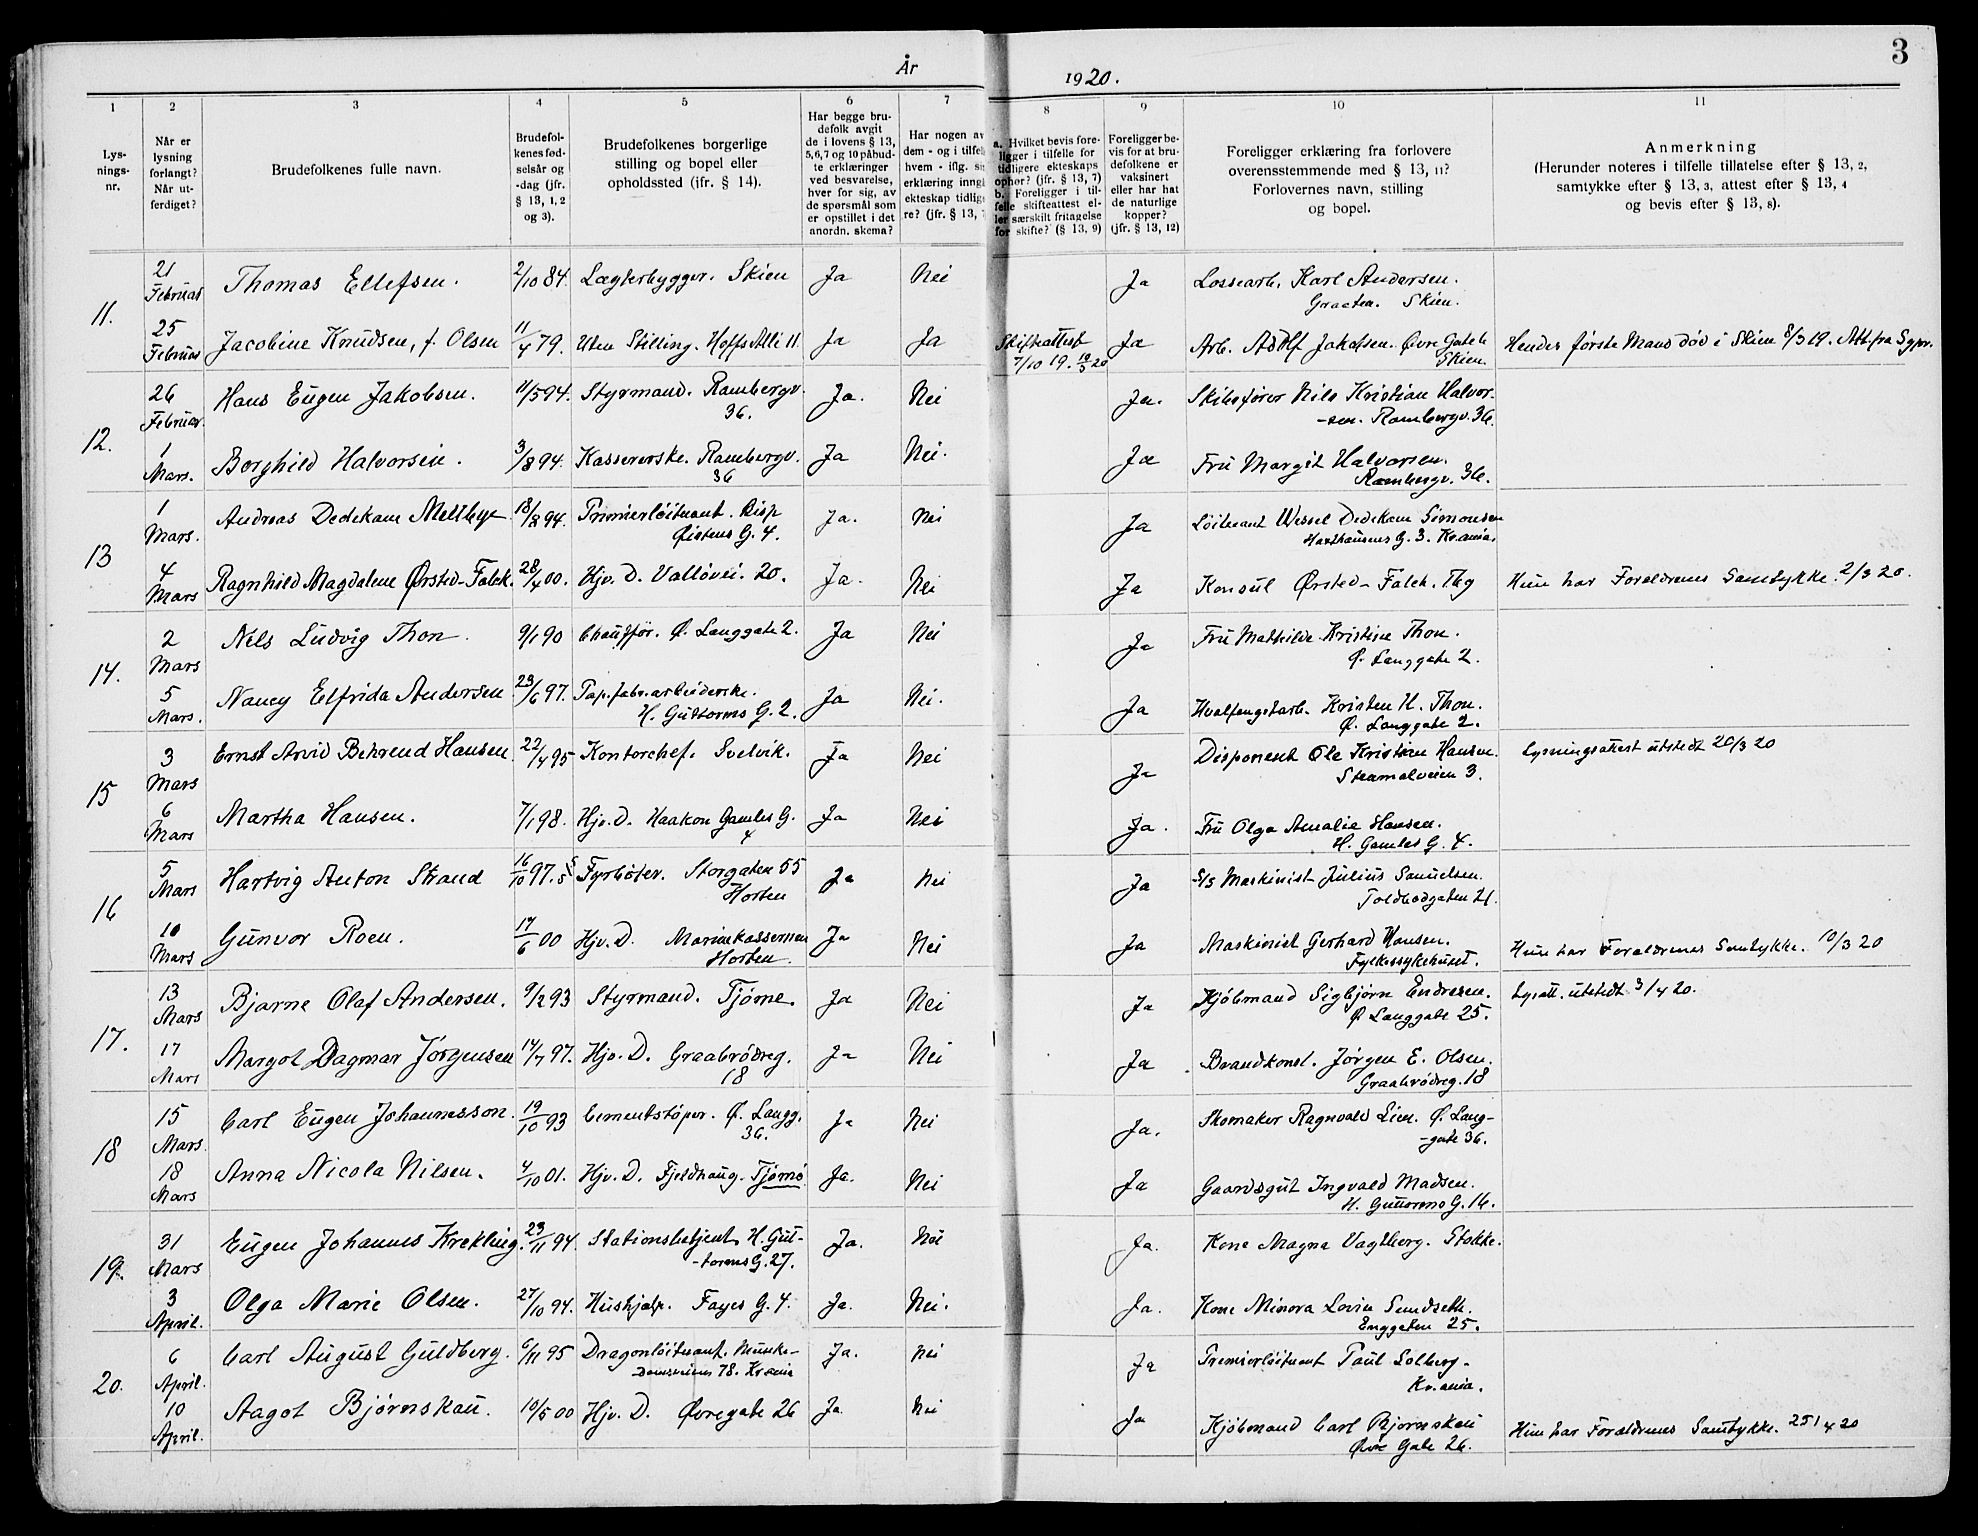 3
År 1920.
1 2 3 4 5 6 7 8 9 10 11
Lys-
nings-
nr.
Når er
lysning
forlangt?
Når ut-
ferdiget?
Brudefolkenes fulle navn.
Brudefol-
kenes fød-
selsår og
-dag (jfr.
§ 13, 1, 2
og 3).
Brudefolkenes borgerlige
stilling og bopel eller
opholdssted (ifr. § 14).
Har begge bru-
defolk avgit
de i lovens § 13,
5,6,7 og 10 påbud-
te erklæringer
ved besvarelse,
hver for sig, av
de spørsmål som
er opstillet i det
anordn. skema?
Har nogen av
dem - og i tilfel
hvem - iflg. si
erklæring inng
ekteskap tidlig
re? (jfr. § 13, 7
a. Hvilket bevis fore-
ligger i tilfelle for
tidligere ekteskaps
ophør? (jfr. § 13, 7)
b. Foreligger i til-
felle skifteattest el-
ler særskilt fritagelse
for skifte? (§ 13, 9)
Foreligger be-
vis for at bru-
defolkene er
vaksinert
eller har hat
de naturlige
kopper?
(jfr. § 13, 12)
Foreligger erklæring fra forlovere
overensstemmende med § 13, 11?
Forlovernes navn, stilling
og bopel.
Anmerkning
(Herunder noteres i tilfelle tillatelse efter § 13, 2,
samtykke efter § 13, 3, attest efter § 13, 4
og bevis efter § 13, 8).
11. 21 Februar Thomas Ellefsen. 2/10 84. Lægterbygger. Skien Ja Nei Ja Lossearb. Karl Andersen.
Graaten. Skien.
25 Februar Jacobine Knudsen, f. Olsen 11/4 79. Uten Stilling. Hoffs Alli 11 Ja Ja Skifteattest Ja Arb. Adolf Jakobsen. Øvre Gate 6 Hendes første Mand død i Skien 8/3 19. Att. fra Sgpr.
7/10 19. 10/3 20 Skien.
12. 26 Februar. Hans Eugen Jakobsen. 11/5 94. Styrmand. Rambergv. Ja. Nei Ja. Skibsfører Nils Kristian Halvor-
36. -sen. Rambergv. 36.
1 Mars. Borghild Halvorsen. 3/8 94. Kassererske. Rambergv. Ja Nei. Ja Fru Margit Halvorsen.
36 Rambergv. 36.
13 1 Mars. Andreas Dedekam Melbye 18/8 94. Primierløitnant. Bisp Ja. Nei Ja Løitnant Wessel Dedekam Simonsen
Øistens G. 4. Haxthausens G. 3. Kr.ania.
4 Mars Ragnhild Magdalene Ørsted-Falck. 28/4 00. Hjv. D. Valløvei. 20. Ja. Nei Ja Konsul Ørsted-Falck. Tbg Hun har Forældrenes Samtykke. 2/3 20.
14. 2 Mars Nels Ludvig Thon. 9/1 90 Chauffør. Ø. Langgate 2. Ja Nei Ja Fru Mathilde Kristine Thon.
Ø. Langgate 2.
5 Mars. Nancy Elfrida Andersen 23/6 97. Pap. fabr. arbeiderske. Ja Nei. Ja Hvalfangstarb. Kristen H. Thon.
H. Guttorms G. 2. Ø. Langgate 2.
15 3 Mars Ernst Arvid Behrend Hansen 22/4 95 Kontorchef. Svelvik. Ja Nei Ja Disponent Ole Kristian Hansen. Lysningsattest utstedt 20/3 20
3.
6 Mars Martha Hansen. 7/1 98. Hjv. D. Haakon Gamles G. Ja Nei Ja. Fru Olga Amalie Hansen.
4 H. Gamles G. 4.
16 5 Mars Hartvig Anton Strand 16/10 97. Fyrbøter. Storgaten 55 Ja Nei Ja Maskinist Julius Samuelsen.
Horten Toldbodgaten 21.
10 Mars Gunvor Roen. 17/6 00 Hjv. D. Marinekassernen Ja Nei Ja Maskinist Gerhard Hansen. Hun har Forældrenes Samtykke. 10/3 20
Horten. Fylkessykehuset.
17. 13 Mars Bjarne Olaf Andersen. 9/12 93 Styrmand. Tjøme. Ja Nei Ja Kjøbmand Sigbjørn Endresen. Lysatt. utstedt 3/4 20.
Ø Langgate 25.
17 Mars Margot Dagmar Jörgensen 14/7 97. Hjv. D. Graabrødreg. Ja Nei Ja Brandkonst. Jørgen E. Olsen.
18 Graabrødreg. 18
18 15 Mars. Carl Eugen Johannesson. 19/10 93 Cementstøper. Ø. Langg. Ja Nei Ja. Skomaker Ragnvald Lien. Ø. Lang-
36. -gate 36.
18 Mars Anna Nicola Nilsen. 4/10 01. Hjv. D. Fjeldhaug. Tjømø. Ja. Nei Ja Gaardsgut Ingvald Madsen.
H. Guttorms G. 16.
19. 31 Mars Eugen Johannes Krekling. 23/11 94. Stationsbetjent. H. Gut- Ja. Nei Ja. Kone Magna Vagtberg. Stokke.
-torms G. 27.
3 April. Olga Marie Olsen. 27/10 94. Hushjælp. Fayes G. 4. Ja. Nei. Ja. Kone Minora Lovise Sundseth.
Enggaten 25.
20. 6 April. Carl August Guldberg. 6/11 95 Dragonløitnant. Munke- Ja. Nei Ja Premierløitnant Paul Solberg.
Damsveien 78. Kr.ania Kr.ania.
10 April. Aagot Bjørnskau. 10/5 00 Hjv. D. Øvregate 26 Ja Nei Ja Kjøbmand Carl Bjørnskau Hun har Forældrenes Samtykke. 25/4 20
Øvre Gate 26.